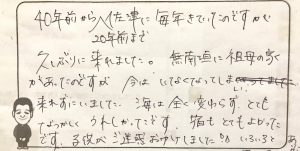 40年前から佐津に毎年きていたのですが
20年前まで
久しぶりに来れました。無南垣に祖母の家
があったのですが 今は いなくなってしまい
来れずにいました。海は全く変わらず、とても
なつかしく うれしかったです。宿もとてもよかった
です。子供がご迷惑おかけしましたが いろいろと